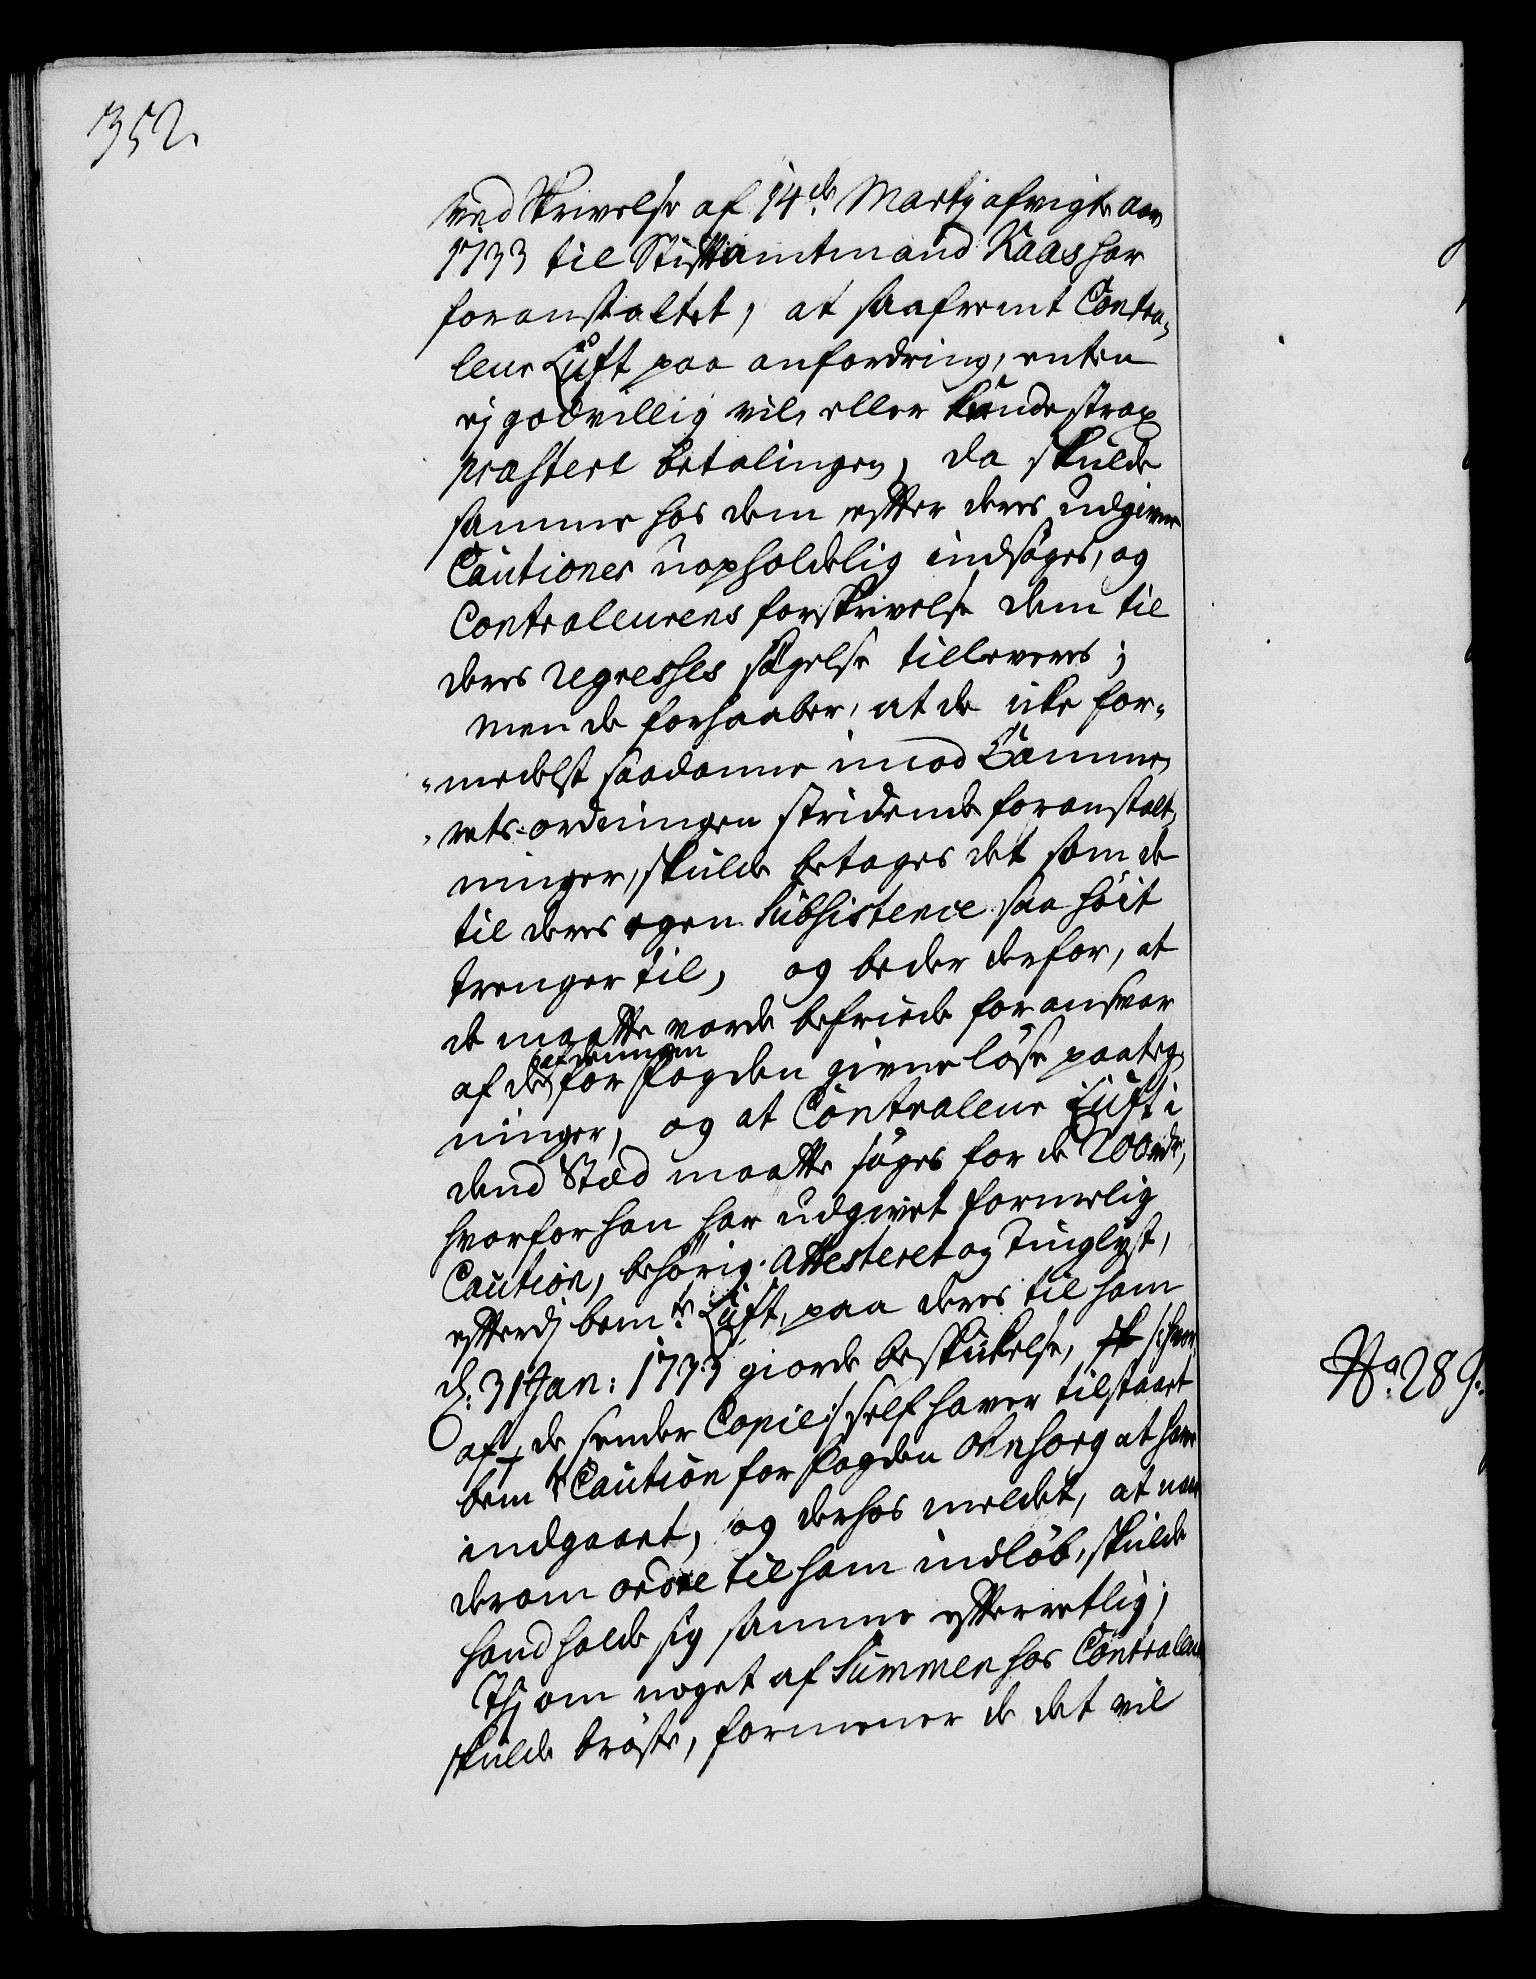 352.
ved Skrivelse af 14de Martij afvigte aar
1733 til Stiftamtmand Kaas har
foranstaltet, at saafremt Contra-
leur Luft paa anfordring, enten
ej godvillig vil, eller kunde strax
præstere betalingen, da skulde
samme hos dem efter deres udgivne
Cautioner uopholdelig indsøges, og
Contraleurens forskrivelse dem til
deres regresses søgelse tilleveres;
men de forhaaber, at de icke for-
medelst saadanne imod Camme-
rets-ordningen stridende foranstalt-
ninger, skulde betages det som de
til deres egen Subsistence saa høit
trenger til, og beder derfor, at
de maatte vorde befriede for ansvar
af de for Fogden givne løse paateg-
ninger, og at Contraleur Luft i
dend Sted maatte søges for de 200 rdr,
hvorfor han har udgivet formelig
Caution, behørig attesteret og Tinglyst,
efterdj bemte Luft, paa deres til ham
d: 31 Jan: 1733 giorde beskickelse, /: hvor
af de sender Copie :/ self haver tilstaaet
bemte Caution for Fogden Ornsorg at have
indgaaet, og derhos meldet, at naar
derom ordre til ham indløb, skulde
hand holde sig samme efterretlig;
Thj om noget af Summen hos Contraleur
skulde brøste, formener de det vil
No. 289.